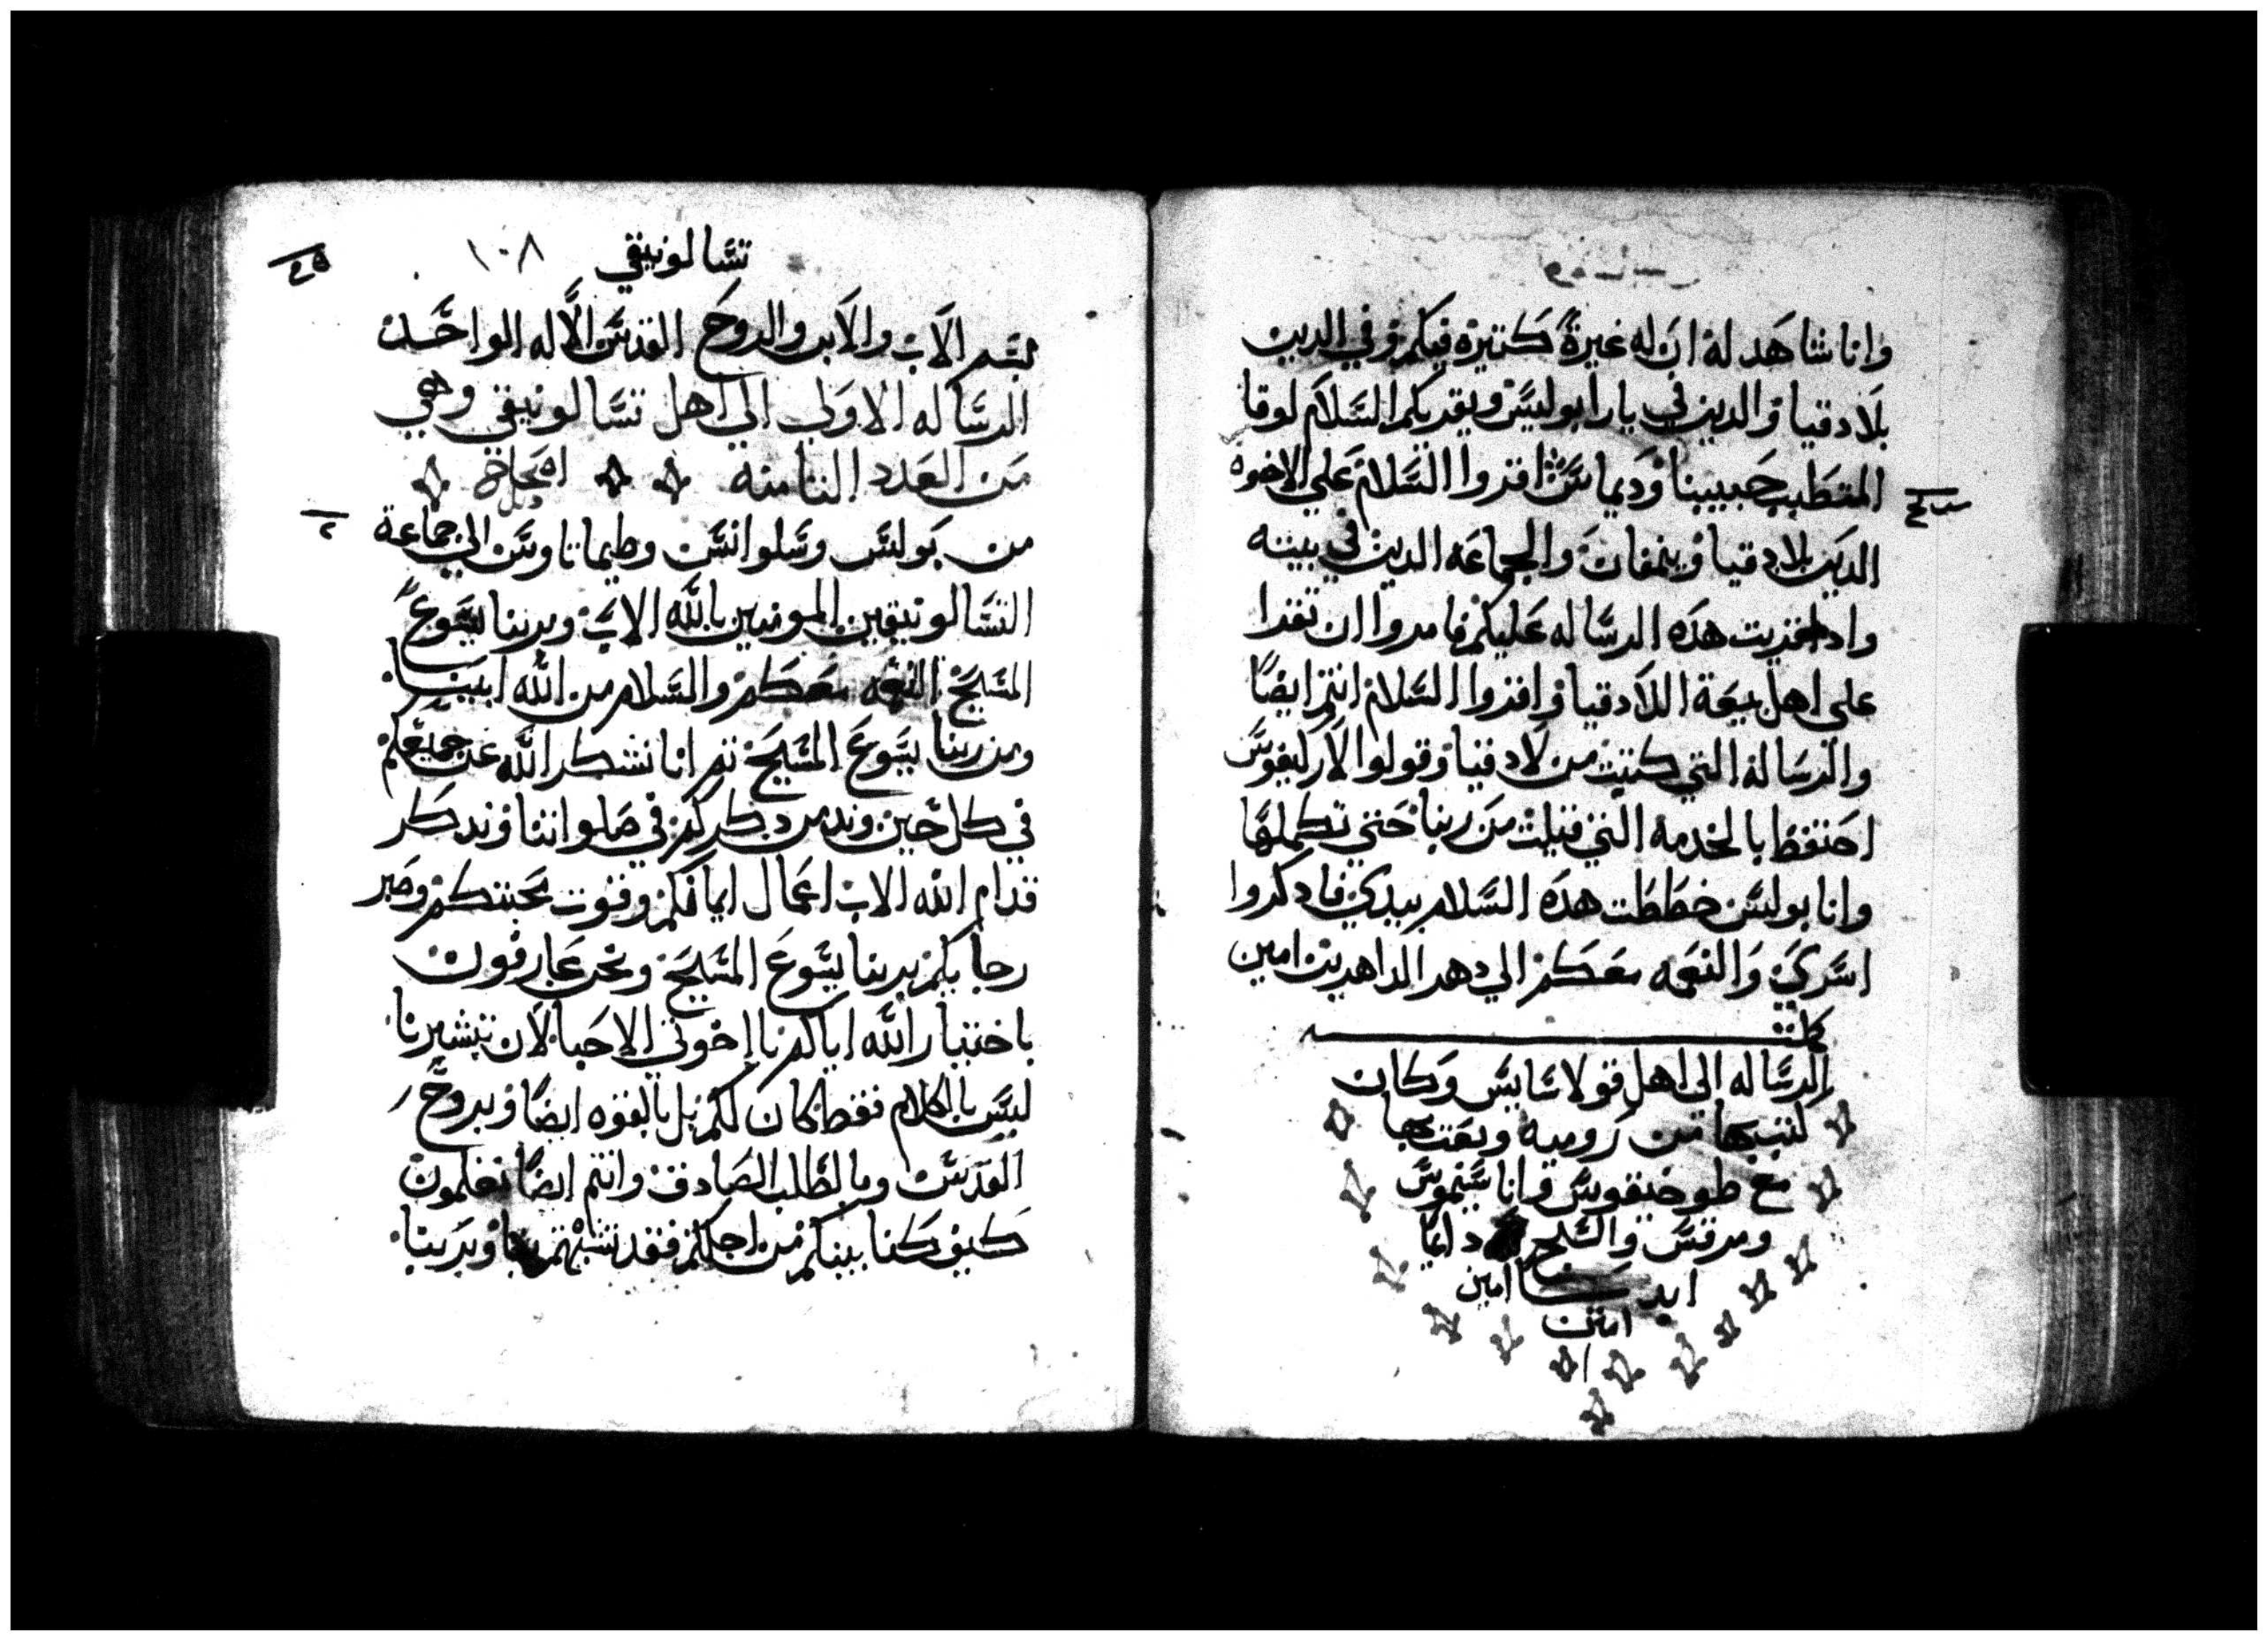 وانا شاهد له ان له غيرة كتيره فيكم وفي الدين
بلادقيا والدين في يارابوليس ويقريكم السلام لوقا
المتطبب حبيبنا وديماس اقروا السلام علي الاخوه
الدين بلادقيا ونمفان والجماعه الدين في بيته
وادا قريت هده الرساله عليكم فامروا ان تقرا
على اهل بيعة اللادقيا واقروا السلام انتم ايضًا
والرساله التي كتبت من لادقيا وقولوا لاركيفوس
احتفظ بالخدمه التي قبلت من ربنا حتي تكملها
وانا بوليس خططت هده السلام بيدي فادكروا
اسري والنعمه معكم الي دهر الداهرين امين
كملت
الرساله الى اهل قولاسايس وكان
كتب بها من روميه وبعت بها
مع طوخيقوس واناسيموس
ومرقس والسبح دايما
ابدا امين
امين
تسالونيقي
١٠٨
بسم الاب والابن والروح القدس الاله الواحد
الرساله الاولي الي اهل تسالونيقي وهي
من العدد التامنه
من بولس وسلوانس وطيماتاوس الي جماعة
التسالونيقين المومنين بالله الاب وبربنا يسوع
المسيح النعمه معكم والسلام من الله ابينا
ومن ربنا يسوع المسيح تم انا نشكر الله عن جميعكم
في كل حين وندمر دكركم في صلواتنا وندكر
قدام الله الاب اعمال ايمانكم وقوت محبتكم وصبر
رجايكم بربنا يسوع المسيح ونحن عارفون
باختيار الله اياكم يا إخوتي الاحبا لان تبشيرنا
ليس بالكلام فقط كان لكم بل بالقوه ايضًا وبروح
القدس وبالطلب الصادق وانتم ايضًا تعلمون
كيف كنا بينكم من اجلكم فقد تشبهتم بنا وبربنا